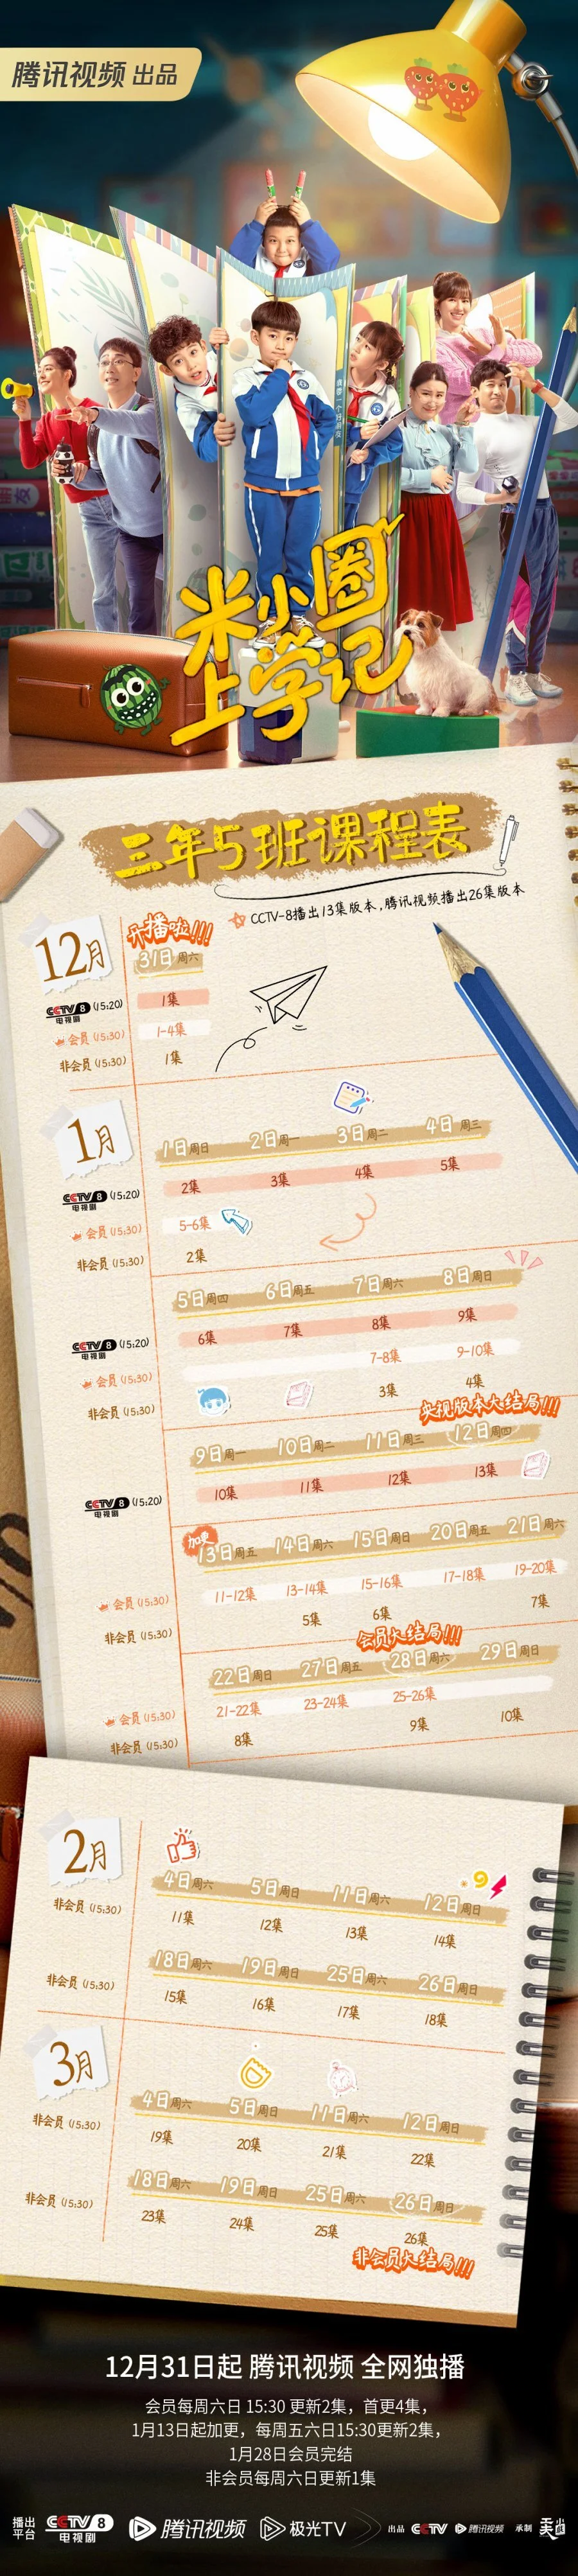 腾讯视频 出品
我要一个好朋友
米小圈
上学记
三年5班课程表
CCTV-8播出13集版本,腾讯视频播出26集版本
12月
开播啦!!!
31日 周六
CCTV 8 电视剧 (15:20) 1集
会员 (15:30) 1-4集
非会员 (15:30) 1集
1月
1日 周日 2日 周一 3日 周二 4日 周三
CCTV 8 电视剧 (15:20) 2集 3集 4集 5集
会员 (15:30) 5-6集
非会员 (15:30) 2集
5日 周四 6日 周五 7日 周六 8日 周日
CCTV 8 电视剧 (15:20) 6集 7集 8集 9集
会员 (15:30) 7-8集 9-10集
非会员 (15:30) 3集 4集
央视版本大结局!!!
9日 周一 10日 周二 11日 周三 12日 周四
CCTV 8 电视剧 (15:20) 10集 11集 12集 13集
加更
13日 周五 14日 周六 15日 周日 20日 周五 21日 周六
会员 (15:30) 11-12集 13-14集 15-16集 17-18集 19-20集
非会员 (15:30) 5集 6集 7集
会员大结局!!!
22日 周日 27日 周五 28日 周六 29日 周日
会员 (15:30) 21-22集 23-24集 25-26集
非会员 (15:30) 8集 9集 10集
2月
4日 周六 5日 周日 11日 周六 12日 周日
非会员 (15:30) 11集 12集 13集 14集
18日 周六 19日 周日 25日 周六 26日 周日
非会员 (15:30) 15集 16集 17集 18集
3月
4日 周六 5日 周日 11日 周六 12日 周日
非会员 (15:30) 19集 20集 21集 22集
18日 周六 19日 周日 25日 周六 26日 周日
非会员 (15:30) 23集 24集 25集 26集
非会员大结局!!!
12月31日起 腾讯视频 全网独播
会员每周六日 15:30 更新2集，首更4集，
1月13日起加更，每周五六日15:30更新2集，
1月28日会员完结
非会员每周六日更新1集
播出平台 CCTV 8 电视剧 腾讯视频 极光TV 出品 CCTV 腾讯视频 承制